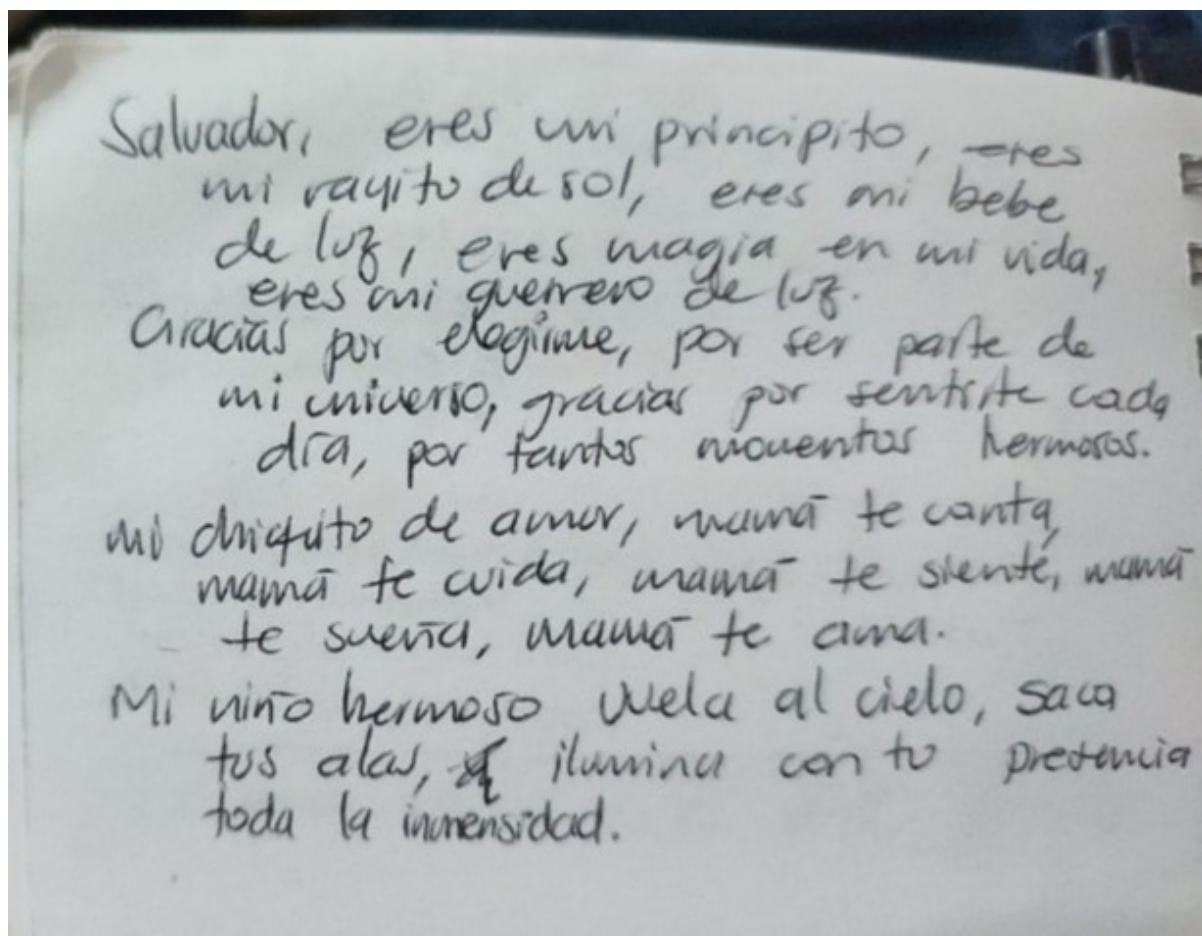 Salvador, eres mi principito, eres
mi rayito de sol, eres mi bebe
de luz, eres magia en mi vida,
eres mi guerrero de luz.
Gracias por elegirme, por ser parte de
mi universo, gracias por sentirte cada
día, por tantos momentos hermosos.
Mi chiquito de amor, mamá te canta,
mamá te cuida, mamá te siente, mamá
te sueña, mamá te ama.
Mi niño hermoso vuela al cielo, saca
tus alas, ilumina con tu presencia
toda la inmensidad.